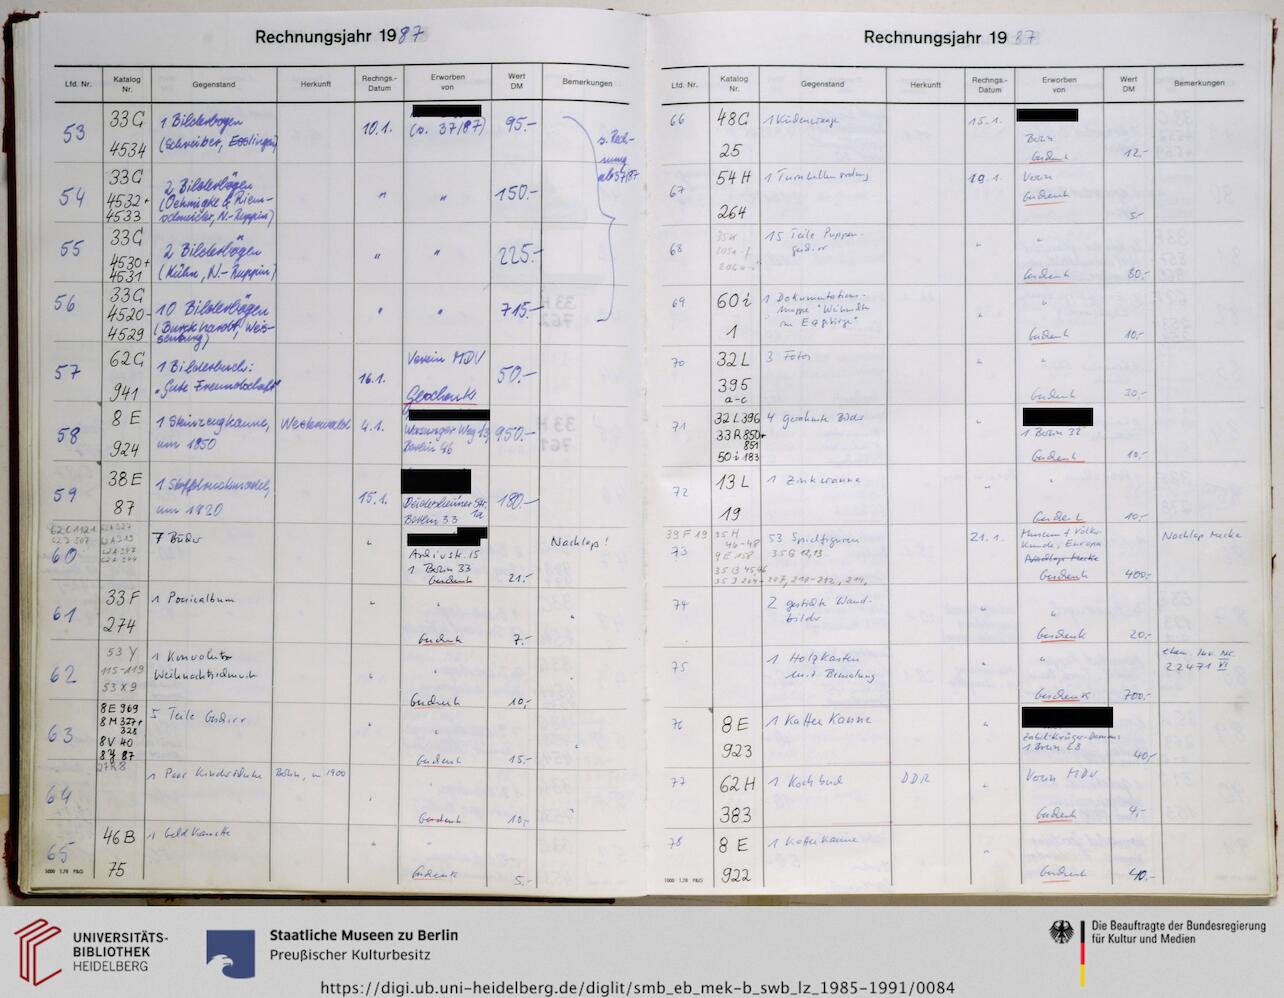 Rechnungsjahr 1987
Lfd. Nr. Katalog Nr. Gegenstand Herkunft Rechngs.-Datum Erworben von Wert DM Bemerkungen
53 33G 4534 1 Bilderbogen (Schreiber, Esslingen) 10.1. (s. 37/87) 95.- s. Rech-
nung
ab 37/87
54 33G 4532+ 4533 2 Bilderbögen (Oehmigke & Riem-
schneider, N.-Ruppin) " " 150.-
55 33G 4530+ 4531 2 Bilderbögen (Kühn, N.-Ruppin) " " 225.-
56 33G 4520- 4529 10 Bilderbögen (Burckhardt, Weis-
senburg) " " 715.-
57 62G 941 1 Bilderbuch: "Gute Freundschaft" 16.1. Verein MDV Geschenk 50.-
58 8E 924 1 Steinzeugkanne, um 1850 Westerwald 4.1. Berlin 46 950.-
59 38E 87 um 1920 15.1. Deidesheimer Str. 1a Berlin 33 180.-
60 7 Bücher " 1 Berlin 33 Geschenk 21.- Nachlaß!
61 33F 274 1 Poesiealbum " " Geschenk 7.- "
62 53 Y 115-119 53 X 9 1 Konvolut Weihnachtsschmuck " " Geschenk 10,- "
63 8E 969 8M 327+ 328 8V 40 8Y 87 5 Teile Geschirr " " Geschenk 15.- "
64 27R8 1 Paar Kinderschuhe Berlin, um 1900 " " Geschenk 10,- "
65 46B 75 1 Geldkassette " " Geschenk 5.-
5000 5.78 P&G
Rechnungsjahr 1987
Lfd. Nr. Katalog Nr. Gegenstand Herkunft Rechngs.-Datum Erworben von Wert DM Bemerkungen
66 48G 25 1 Küchenwaage 15.1. Berlin Geschenk 12.-
67 54H 264 1 Turnhallenordnung 19.1. Verein Geschenk 5.-
68 15 Teile Puppen-
geschirr " " Geschenk 80.-
69 60i 1 1 Dokumentations-
mappe "Weihnacht
im Erzgebirge" " " Geschenk 10,-
70 32L 395 a-c 3 Fotos " " Geschenk 30,-
71 32L396 33R850+ 851 50i183 4 gerahmte Bilder " 1 Berlin 32 Geschenk 10,-
72 13L 19 1 Zinkwanne " " Geschenk 10,-
73 39F19 35H 46-48 9E 158 53 Spielfiguren 35G 12,13 21.1. Museum f. Völker-
kunde, Europa Geschenk 400.- Nachlaß
74 2 gestickte Wand-
bilder " " Geschenk 20.-
75 1 Holzkasten
mit Bemalung " " Geschenk 700.- ehem. Inv. Nr.
22471 VI
76 8E 923 1 Kaffeekanne " Zabel-Krüger-Damm 1 Berlin 28 40,-
77 62H 383 1 Kochbuch DDR " Verein MDV Geschenk 4,-
78 8E 922 1 Kaffeekanne " " Geschenk 40.-
1000 5.78 P&G
UNIVERSITÄTS-
BIBLIOTHEK
HEIDELBERG
Staatliche Museen zu Berlin
Preußischer Kulturbesitz
Die Beauftragte der Bundesregierung
für Kultur und Medien
https://digi.ub.uni-heidelberg.de/diglit/smb_eb_mek-b_swb_lz_1985-1991/0084